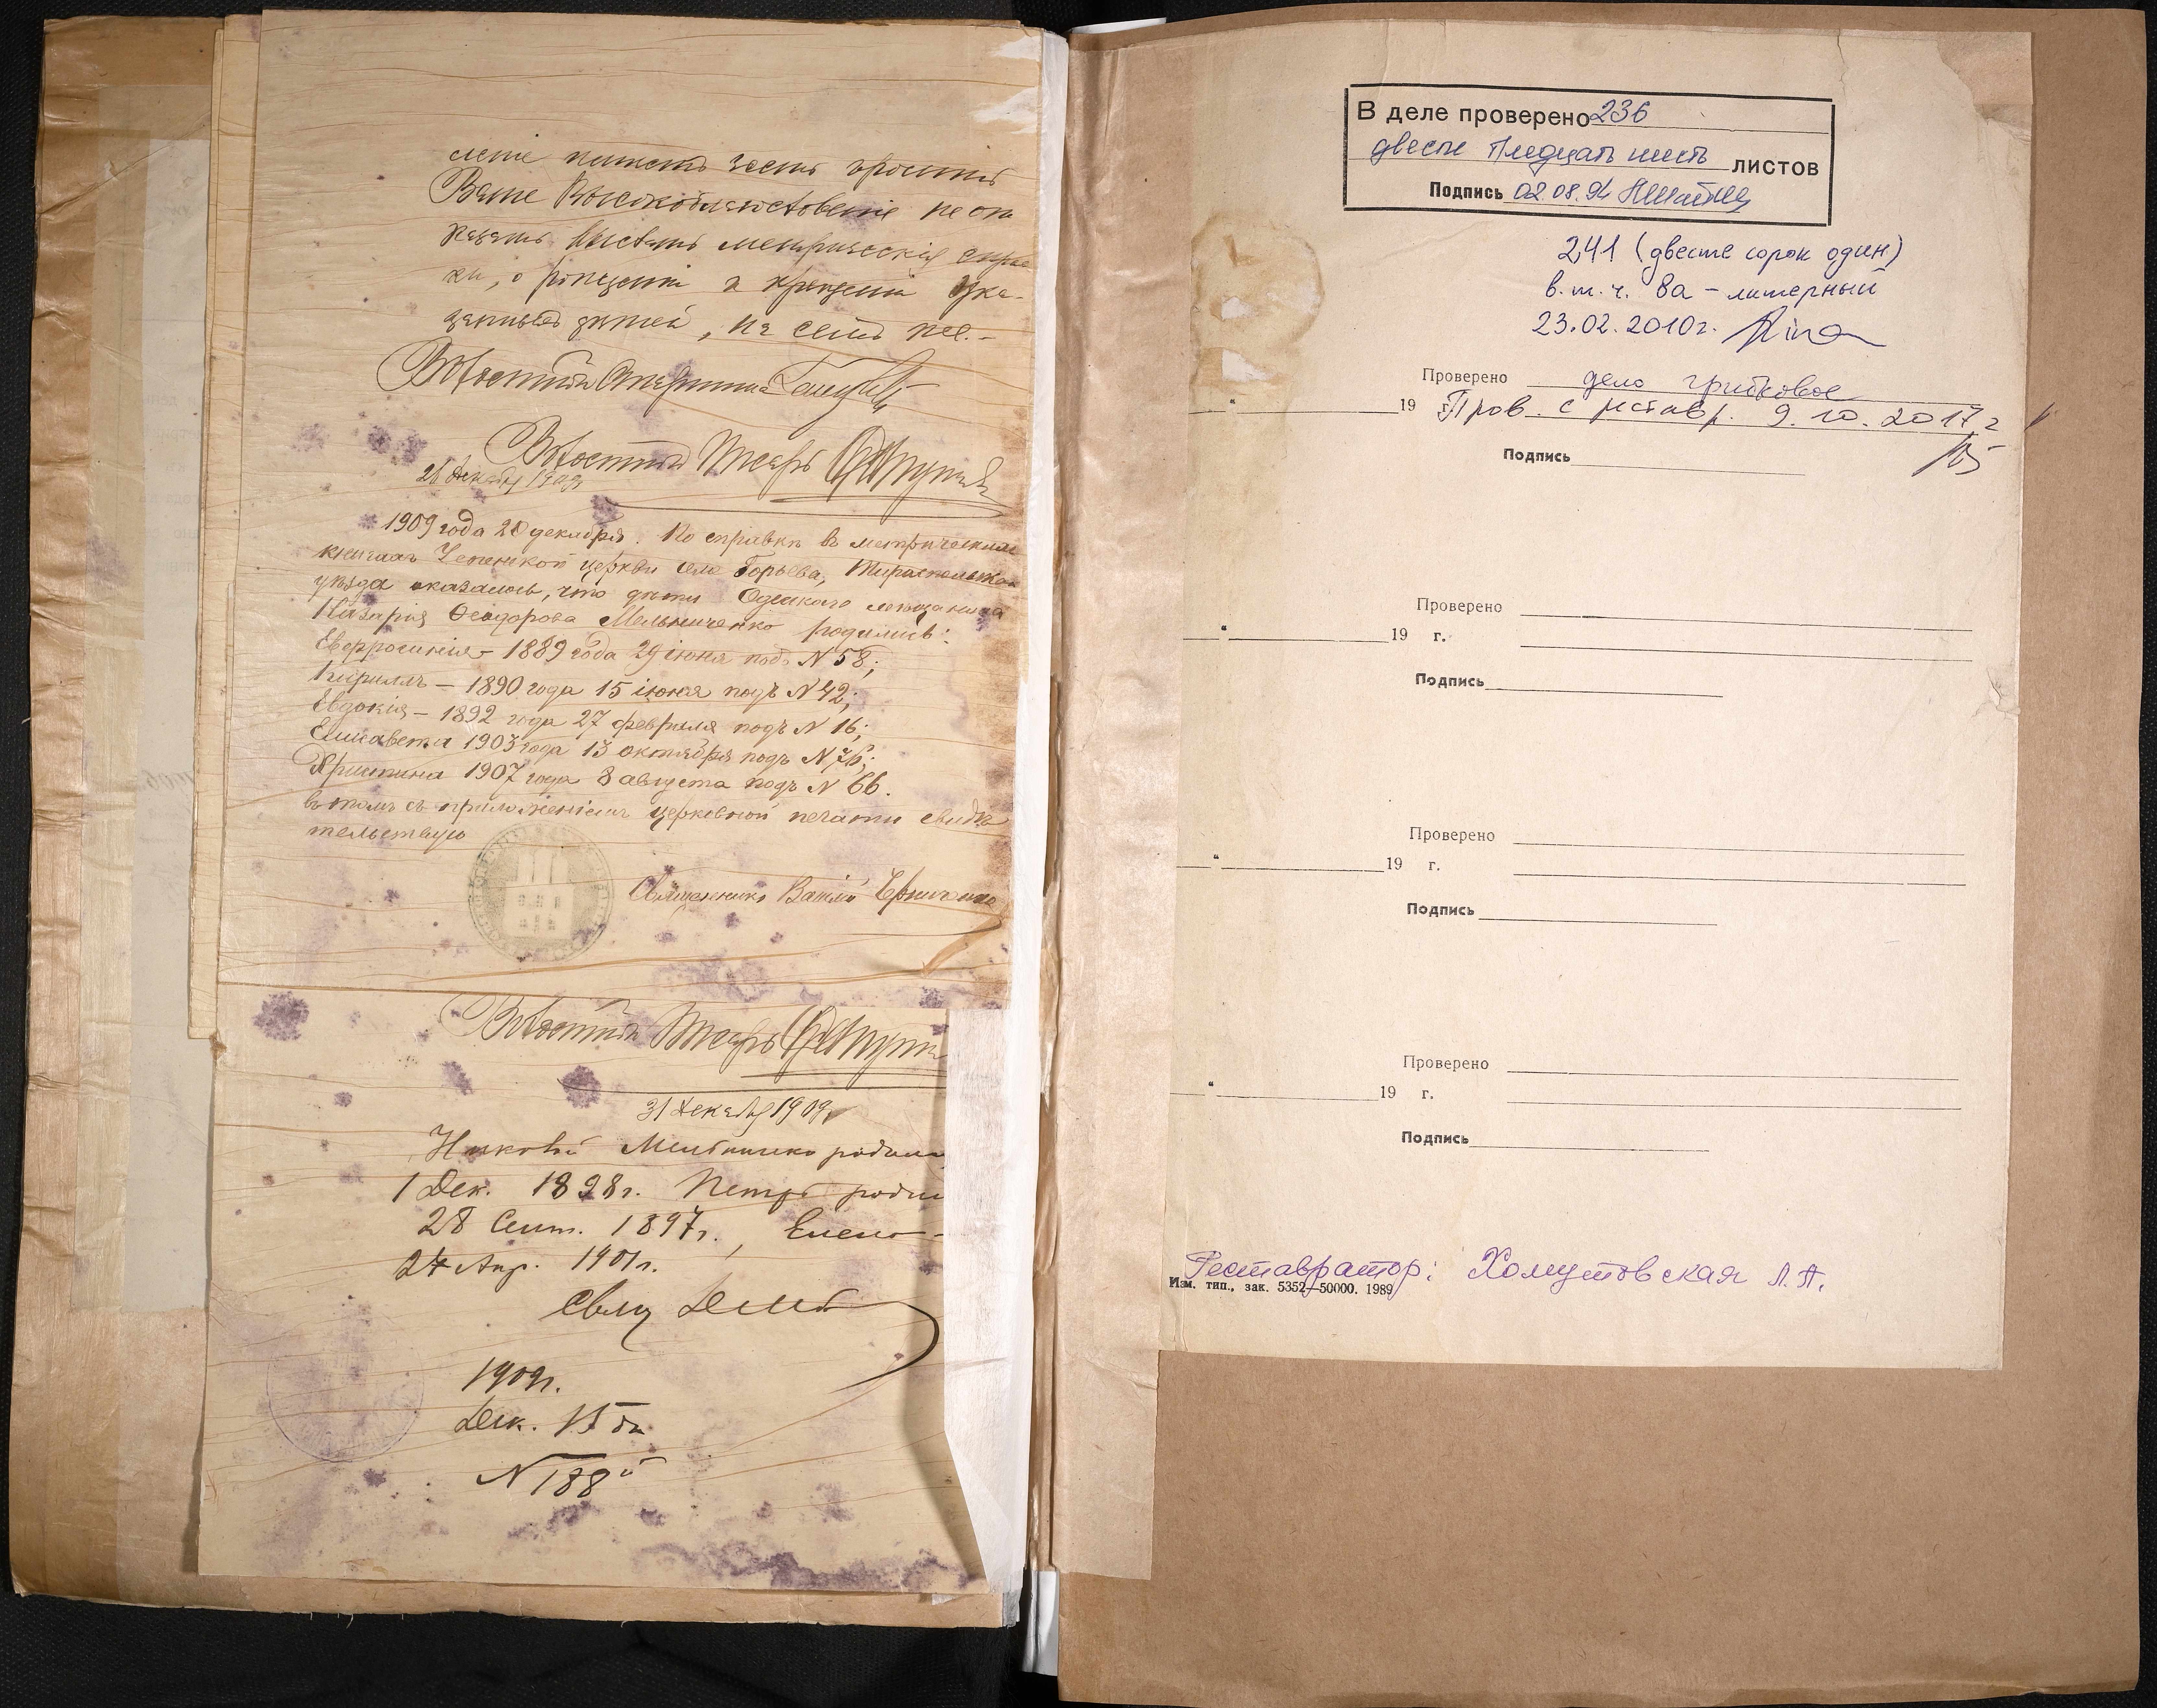 имѣетъ честь просить
Ваше Высокоблагословеніе не от
казать выслать метрическія справ
ки, о рожденіи и крещеніи ука-
занныхъ дѣтей, на семъ же.-
Волостной Старшина
Волостной Писарь
21 Декабря 1909
1909 года 20 декабря. По справкѣ въ метрическихъ
книгахъ Успенской церкви села Горьева, Тираспольскаго
уѣзда оказалось, что дѣти Одесскаго мѣщанина
Назарія Ѳеодорова Мельниченко родились:
Евфросинія - 1889 года 29 іюня подъ N 58;
Кириллъ - 1890 года 15 іюня подъ N 42;
Евдокія - 1892 года 27 февраля подъ N 16;
Елисавета 1903 года 13 октября подъ N 76;
Христина 1907 года 8 августа подъ N 66.
въ томъ съ приложеніемъ церковной печати свидѣ
тельствую
Священникъ Василій
Волостной Писарь
31 Декабря 1909
Мельниченко родил
1 Дек. 1898 г. Петръ роди
28 Сент. 1897 г., Елена -
27 Апр. 1901 г.
Свящ
1909 г.
Дек. 15 дн
N 188й
В деле проверено 236
двести тридцать шесть листов
Подпись 02.08.94
241 (двести сорок один)
в.т.ч. 8а - литерный
23.02.2010г.
Проверено дело грибковое
19 г. Пров. с реставр. 9.10.2017 г
Подпись
Проверено
" 19 г.
Подпись
Проверено
" 19 г.
Подпись
Проверено
" 19 г.
Подпись
Реставратор: Хомутовская Л.А.
Изм. тип., зак. 5352—50000. 1989